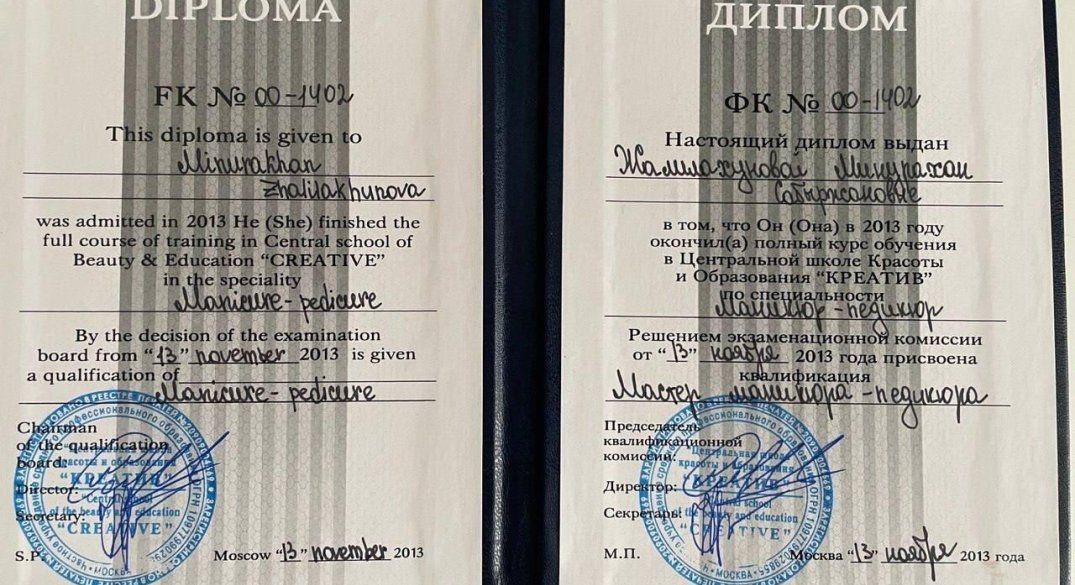 DIPLOMA
FK № 00-1402
This diploma is given to
Minurakhan
Zhalilakhunova
was admitted in 2013 He (She) finished the
full course of training in Central school of
Beauty & Education “CREATIVE”
in the speciality
Manicure-pedicure
By the decision of the examination
board from “13” november 2013 is given
a qualification of
Manicure-pedicure
Chairman
of the qualification
board:
Director:
Secretary:
S.P. Moscow “13” november 2013
"КРЕАТИВ"
"Central school
of the beauty and education
"CREATIVE"
МОСКВА
ДИПЛОМ
ФК № 00-1402
Настоящий диплом выдан
Жалилахуновой Минурахан
Сабыржановне
в том, что Он (Она) в 2013 году
окончил(а) полный курс обучения
в Центральной школе Красоты
и Образования “КРЕАТИВ”
по специальности
Маникюр-педикюр
Решением экзаменационной комиссии
от “13” ноября 2013 года присвоена
квалификация
Мастер маникюра-педикюра
Председатель
квалификационной
комиссии:
Директор:
Секретарь:
М.П. Москва “13” ноября 2013 года
"Центральная школа
красоты и образования
"КРЕАТИВ"
"Central school
of the beauty and education
"CREATIVE"
МОСКВА